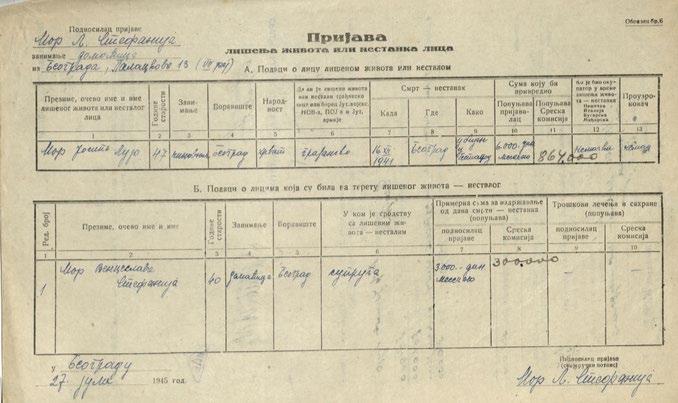 Образац бр. 6
Подносилац пријаве
Мор Л. Стефанија
занимање домаћица
из Београда, 13 (VII реј)
Пријава
лишења живота или нестанка лица
А. Подаци о лицу лишеном живота или несталом
Презиме, очево име и име лишеног живота или несталог лица
Године старости
Занимање
Боравиште
Народност
Да ли је лишени живота или нестали грађанско лице или борац Југ. војске, НОВ-а, ПОЈ и и Југ. армије
Смрт — нестанак
Када
Где
Како
Сума коју би привредио
Попуњава пријавилац
Попуњава Среска комисија
Проузроковач
1 2 3 4 5 6 7 8 9 10 11 12 13
Мор Јосипа Лујо 47 чиновник Београд хрват грађанско 16 XII 1941 Београд 6.000.- дин месечно 864.000 Немачка
Б. Подаци о лицима која су била на терету лишеног живота — несталог
Ред. број
Презиме, очево име и име
Године старости
Занимање
Боравиште
У ком је сродству са лишеним живота — несталим
Примерна сума за издржавање од дана смрти — нестанка (попуњава)
подносилац пријаве
Среска комисија
Трошкови лечења и сахране (попуњава)
подносилац пријаве
Среска комисија
1 2 3 4 5 6 7 8 9 10
1 Мор Венцеслава Стефанија 40 домаћица Београд супруга 3000.- дин месечно 300.000
У Београду
27 јула 1945 год.
Подносилац пријаве
(својеручни потпис)
Мор Л. Стефанија